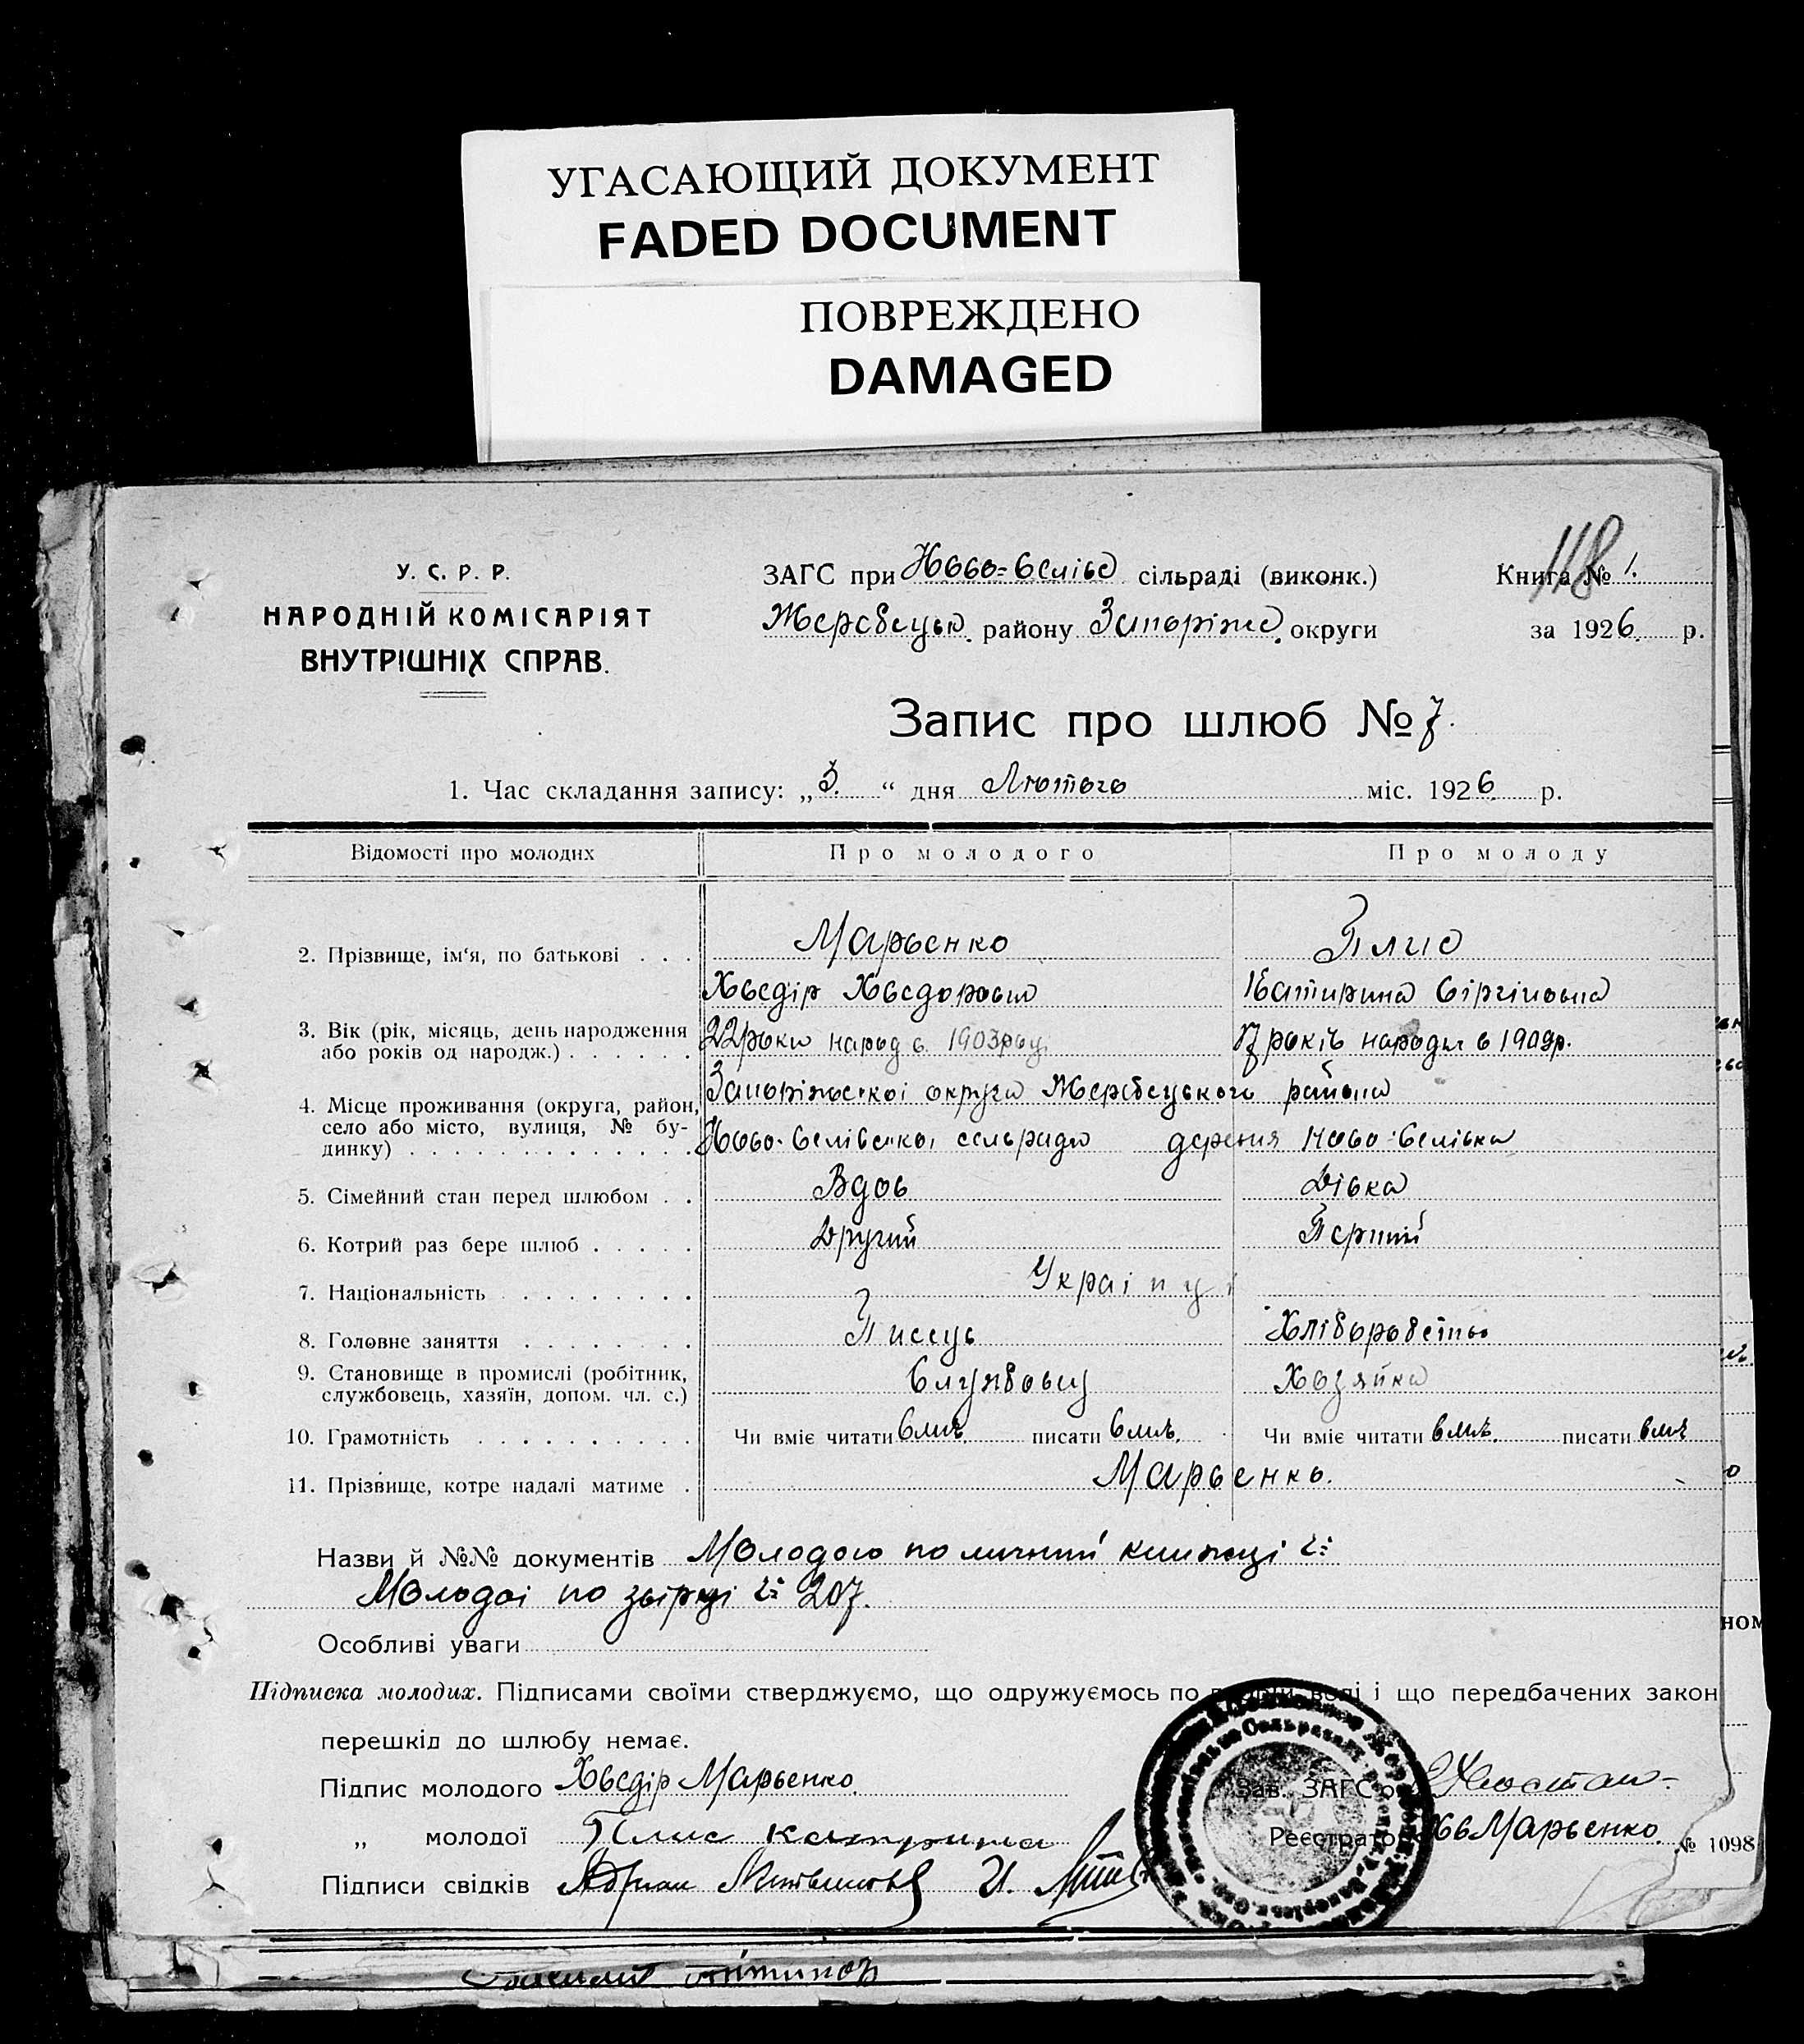 УГАСАЮЩИЙ ДОКУМЕНТ
FADED DOCUMENT
ПОВРЕЖДЕНО
DAMAGED
118
У. С. Р. Р.
НАРОДНІЙ КОМІСАРІЯТ
ВНУТРІШНІХ СПРАВ.
ЗАГС при Ново-Велівс сільраді (виконк.)
Жеребецьк. району Запоріж. округи
Книга № 1.
за 1926 р.
Запис про шлюб № 7.
1. Час складання запису: „3.“ дня Лютого міс. 1926 р.
Відомості про молодих Про молодого Про молоду
2. Прізвище, ім‘я, по батькові . . . Марьенко Плис
Хведір Хведорович Катирина
3. Вік (рік, місяць, день народження або років од народж.) . . . . . . 22 роки народ в 1903 році 17 років в 1909р.
4. Місце проживання (округа, район, село або місто, вулиця, № будинку) . . . . Запоріжської округи Жеребецького района
Ново-Велівської сельради деревня Ново-Велівка
5. Сімейний стан перед шлюбом . . Вдов Дівка
6. Котрий раз бере шлюб . . . . . Другий Перший
7. Національність . . . . . . . . . Українці
8. Головне заняття . . . . . . . . Писець Хліборобство
9. Становище в промислі (робітник, службовець, хазяїн, допом. чл. с.) Хозяйка
10. Грамотність . . . . . . . . . . Чи вміє читати вміє. писати вміє. Чи вміє читати вміє. писати вміє
11. Прізвище, котре надалі матиме . Марьенко.
Назви й №№ документів Молодого по личній книжці
Молодої по 207.
Особливі уваги
Підписка молодих. Підписами своїми стверджуємо, що одружуємось по волі і що передбачених закон
перешкід до шлюбу немає.
Підпис молодого Хведір Марьенко
Зав. ЗАГС‘о
„ молодої Плис Катирина
Реєстратор Хв Марьенко.
№ 1098
Підписи свідків Адриан